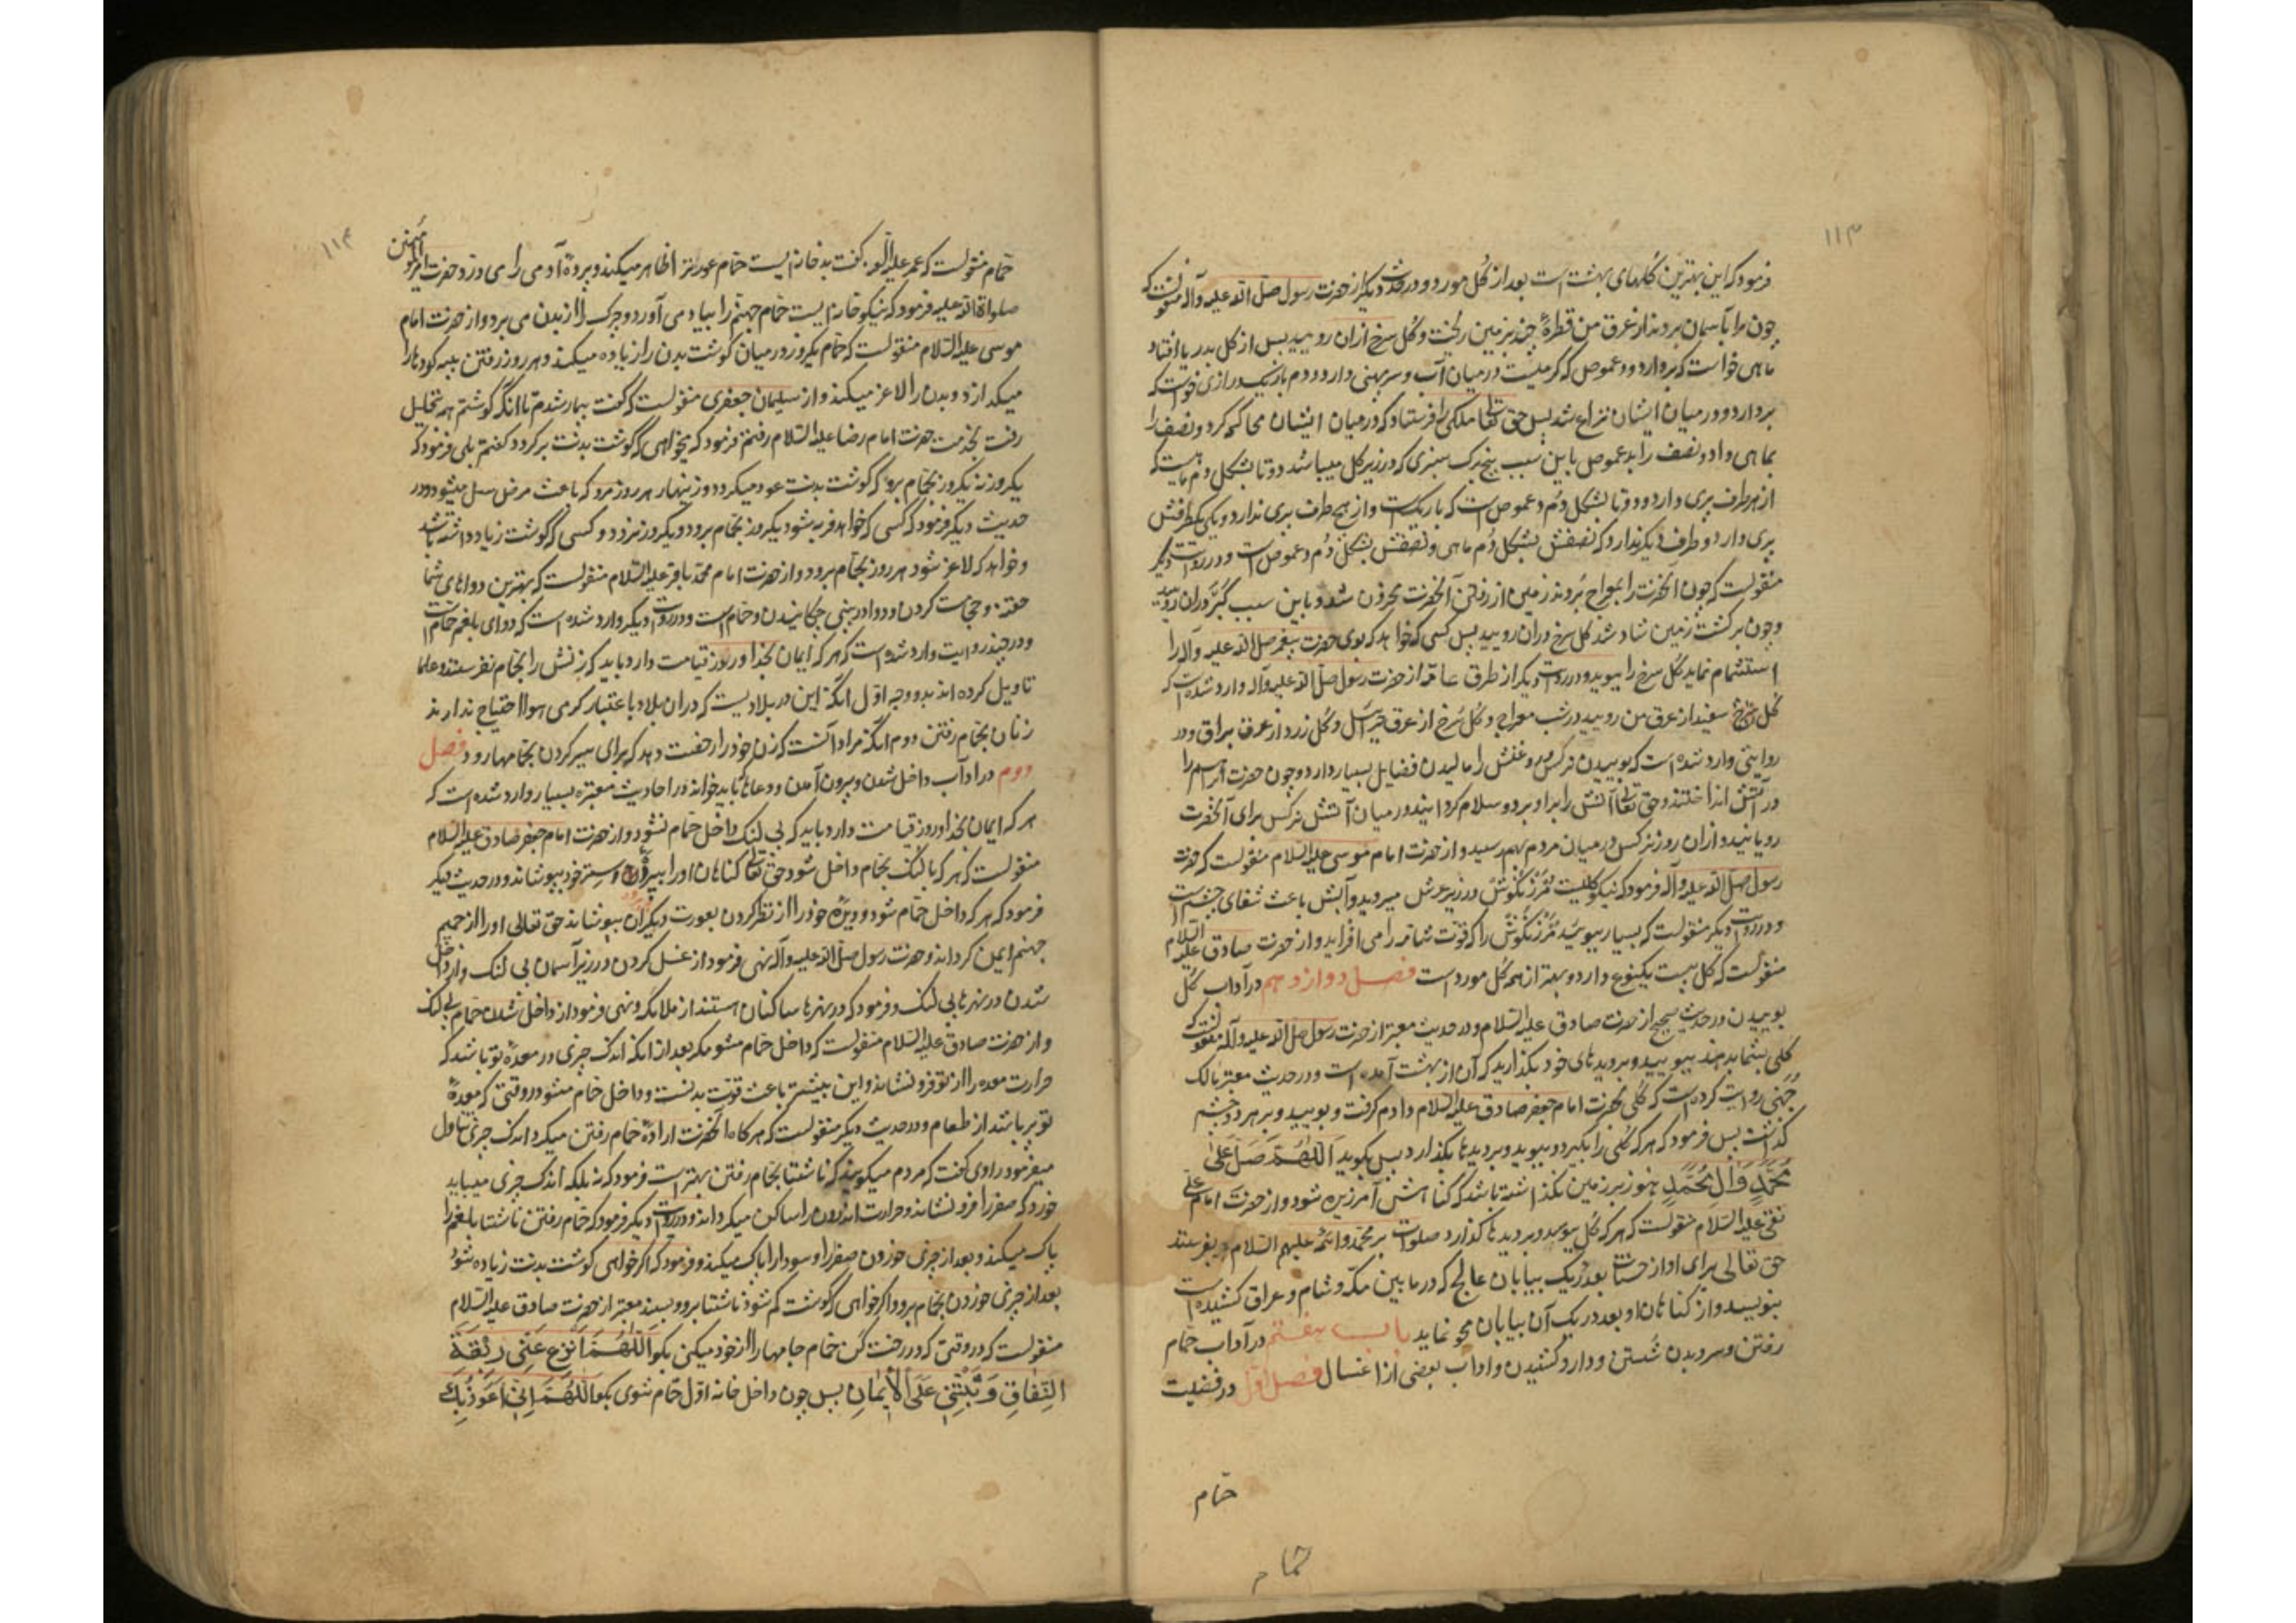 ۱۱۳
فرمود که این بهترین گلهای بهشت است بعد از گل مورد و در حدیث دیگر از حضرت رسول صلی الله علیه وآله منقولست که
چون مرا بآسمان بردند از عرق من قطرهٔ چند بزمین ریخت و گل سرخ ازان رویید پس از گل بدریا افتاد
ماهی خواست که بردارد و دعموص که کرمیست درمیان آب و سر پهنی دارد و دم باریک درازی خواست که
بردارد و درمیان ایشان نزاع شد پس حق تعالی ملکی را فرستاد که درمیان ایشان محاکمه کرد و نصف را
بماهی داد و نصف را بدعموص باین سبب پنج برک سبزی که در زیر گل میباشد دو تا بشکل دم ماهیست که
از هر طرف پری دارد و دو تا بشکل دم دعموص است که باریکست و از هیچ طرف پری ندارد و یکی یکطرفش
پری دارد و طرف دیگر ندارد که نصفش بشکل دُم ماهی و نصفش بشکل دُم دعموص است و در روایت دیگر
منقولست که چون آنحضرت را بمعراج بُردند زمین از رفتن آنحضرت محزون شد و باین سبب کَبَر دران رویید
و چون برگشت زمین شاد شد گل سرخ دران رویید پس کسی که خواهد که بوی حضرت پیغمبر صلی الله علیه وآله را
استشمام نماید گل سرخ را ببوید و در روایت دیگر از طرق عامه از حضرت رسول صلی الله علیه وآله وارد شده است که
گل سفید از عرق من رویید در شب معراج و گل سُرخ از عرق جبرئیل و گل زرد از عرق براق و در
روایتی وارد شده است که بوییدن نرگس و روغنش را مالیدن فضایل بسیار دارد و چون حضرت ابراهیم را
در آتش انداختند و حق تعالی آتش را برا و برد و سلام گردانید درمیان آتش نرگس برای آنحضرت
رویانید و ازان روز نرگس درمیان مردم بهم رسید و از حضرت امام موسی علیه السلام منقولست که حضرت
رسول صلی الله علیه وآله فرمود که نیکو گلیست مَرْزَنْگوش در زیر عرش میروید و آبش باعث شفای چشم است
و در روایت دیگر منقولست که بسیار ببویید مَرْزَنْگوش را که قوت شامه را می افزاید و از حضرت صادق علیه السلام
منقولست که گل بیست یکنوع دارد و بهتر از همه گل مورد است فصل دوازدهم در آداب گل
بوییدن در حدیث صحیح از حضرت صادق علیه السلام و در حدیث معتبر از حضرت رسول صلی الله علیه وآله منقولست که
گلی بشما بدهند ببویید و بر دیدهای خود بگذارید که آن از بهشت آمده است و در حدیث معتبر مالک
جُهَنی روایت کرده است که گلی بحضرت امام جعفر صادق علیه السلام دادم گرفت و بویید و بر هر دو چشم
گذاشت پس فرمود که هر که گلی را بگیرد و ببوید و بر دیدها بگذارد پس بگوید اَللّٰهُمَّ صَلِّ عَلیٰ
مُحَمَّدٍ وَآلِ مُحَمَّدٍ هنوز بر زمین نگذاشته باشد که گناهانش آمرزیده شود و از حضرت امام علی
نقی علیه السلام منقولست که هر که گل ببوید و بر دیدها گذارد و صلوات بر محمد و ائمه علیهم السلام بفرستد
حق تعالی برای او از حسنات بعدد ریک بیابان عالج که در مابین مکه و شام و عراق کشیده است
بنویسد و از گناهان او بعدد ریک آن بیابان محو نماید باب هفتم در آداب حمام
رفتن و سر و بدن شستن و دارو کشیدن و آداب بعضی از اغسال فصل اول در فضیلت
حمام
حمام
۱۱۴
حمام منقولست که عمر علیه کفت بد خانه ایست حمام عورت را ظاهر میکند و پردهٔ آدمی را می درد و حضرت امیرالمؤمنین
صلواة الله علیه فرمود که نیکو خانه ایست حمام جهنم را بیاد می آورد و چرک را از بدن می برد و از حضرت امام
موسی علیه السلام منقولست که حمام یکروز درمیان گوشت بدن را زیاده میکند و هر روز رفتن پیه گردها را
میگدازد و بدن را لاغر میکند و از سلیمان جعفری منقولست که گفت بیمار شدم تا آنکه گوشتم همه تحلیل
رفت بخدمت حضرت امام رضا علیه السلام رفتم فرمود که میخواهی که گوشت بدنت برگردد گفتم بلی فرمود که
یکروز نه یکروز بحمام برو که گوشت بدنت عود میکرد و زینهار هر روز مرو که باعث مرض سل میشود و در
حدیث دیگر فرمود که کسی که خواهد فربه شود یکروز بحمام برود و یکروز نرود و کسی که گوشت زیاد داشته باشد
و خواهد که لاغر شود هر روز بحمام برود و از حضرت امام محمد باقر علیه السلام منقولست که بهترین دواهای شما
حقنه و حجامت کردن و دوا در بینی چکانیدن و حمام است و در روایت دیگر وارد شده است که دوای بلغم حمام است
و در چند روایت وارد شده است که هر که ایمان بخدا و روز قیامت دارد باید که زنش را بحمام نفرستد و علما
تاویل کرده اند بدو وجه اول آنکه این در بلادیست که دران بلاد باعتبار گرمی هوا احتیاج ندارند
زنان بحمام رفتن دوم آنکه مراد آنست که زن خود را رخصت دهد که برای سیر کردن بحمامها رود فصل
دوم در آداب داخل شدن و بیرون آمدن و دعاها که باید خواند در احادیث معتبره بسیار وارد شده است که
هر که ایمان بخدا و روز قیامت دارد باید که بی لنک داخل حمام نشود و از حضرت امام جعفر صادق علیه السلام
منقولست که هر که با لنک بحمام داخل شود حق تعالی گناهان او را بستر خود بپوشاند و در حدیث دیگر
فرمود که هر که داخل حمام شود و دیدهٔ خود را از نظر کردن بعورت دیگران بپوشاند حق تعالی او را از حمیم
جهنم ایمن گرداند و حضرت رسول صلی الله علیه وآله نهی فرمود از غسل کردن در زیر آسمان بی لنک و از داخل
شدن در نهرها بی لنک و فرمود که در نهرها ساکنان هستند از ملائکه و نهی فرمود از داخل شدن حمام بی لنک
و از حضرت صادق علیه السلام منقولست که داخل حمام مشو مگر بعد از آنکه اندک چیزی در معدهٔ تو باشد که
حرارت معده را از تو فرو نشاند و این بیشتر باعث قوت بدنست و داخل حمام مشو در وقتی که معدهٔ
تو پر باشد از طعام و در حدیث دیگر منقولست که هر گاه آنحضرت ارادهٔ حمام رفتن میکرد اندک چیزی تناول
میفرمود راوی گفت که مردم میگویند که ناشتا بحمام رفتن بهتر است فرمود که نه بلکه اندک چیزی میباید
خورد که صفرا را فرو نشاند و حرارت اندرون را ساکن میگرداند و در روایت دیگر فرمود که حمام رفتن ناشتا بلغم را
پاک میکند و بعد از چیزی خوردن صفرا و سودا را پاک میکند و فرمود که اگر خواهی گوشت بدنت زیاده شود
بعد از چیزی خوردن بحمام برو و اگر خواهی که گوشت کم شود ناشتا برو و بسند معتبر از حضرت صادق علیه السلام
منقولست که در وقتی که در رخت کن حمام جامها را از خود میکنی بگو اَللّٰهُمَّ انْزِعْ عَنّی رِبْقَةَ
النِّفَاقِ وَثَبِّتْنِی عَلَی الْاِیْمَانِ پس چون داخل خانه اول حمام شوی بگو اَللّٰهُمَّ اِنِّی اَعُوذُ بِکَ